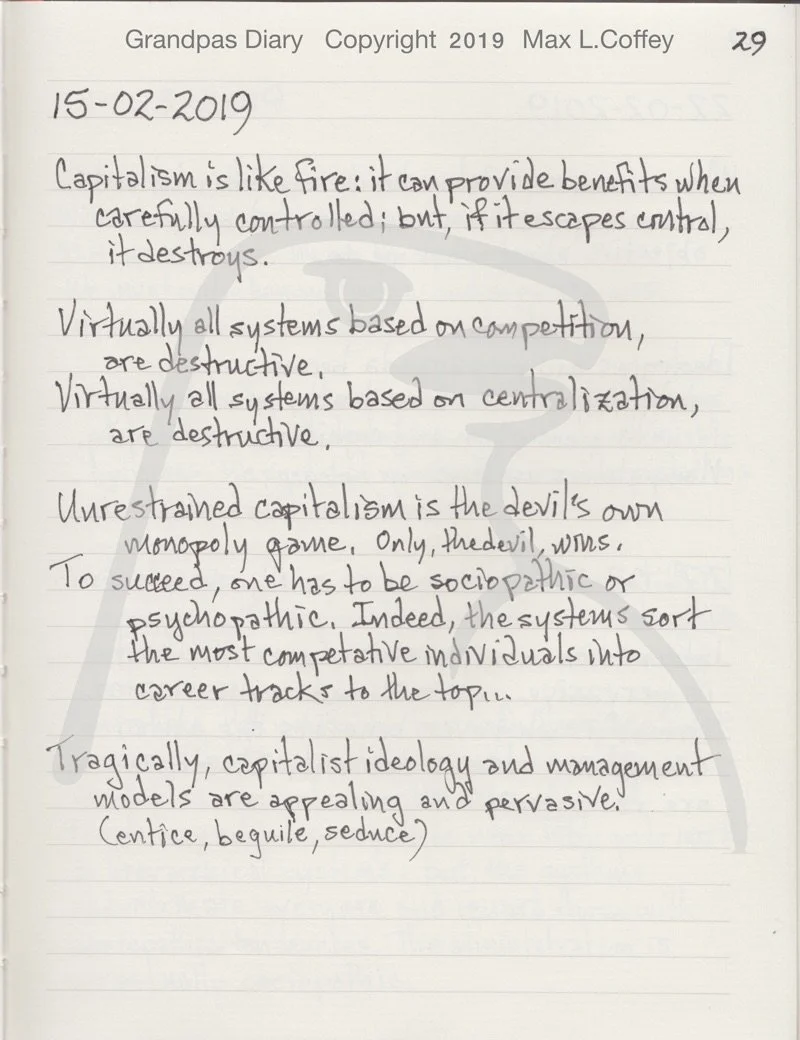 Grandpas Diary Copyright 2019 Max L.Coffey
29
15-02-2019
Capitalism is like fire: it can provide benefits when
carefully controlled; but, if it escapes control,
it destroys.
Virtually all systems based on competition,
are destructive.
Virtually all systems based on centralization,
are destructive.
Unrestrained capitalism is the devil's own
monopoly game. Only, the devil, wins.
To succeed, one has to be sociopathic or
psychopathic. Indeed, the systems sort
the most competative individuals into
career tracks to the top...
Tragically, capitalist ideology and management
models are appealing and pervasive.
(entice, beguile, seduce)